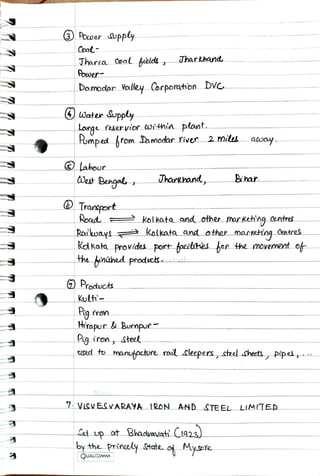 ③ Power Supply
Coal-
Jharia coal fields, Jharkhand
Power-
Damodar Valley Corporation DVC
④ Water Supply
Large reservior within plant.
Pumped from Damodar river 2 miles away.
⑤ Labour
West Bengal, Jharkhand, Bihar
⑥ Transport
Road ⇌ Kolkata and other marketing centres
Railways ⇌ Kolkata and other marketing centres
Kolkata provides port facilities for the movement of
the finished products.
⑦ Products
Kulti-
Pig iron
Hirapur & Burnpur-
Pig iron, steel
used to manufacture rail sleepers, steel sheets, pipes, ...
7. VISVESVARAYA IRON AND STEEL LIMITED
Set up at Bhadravati (1923)
by the princely state of Mysore